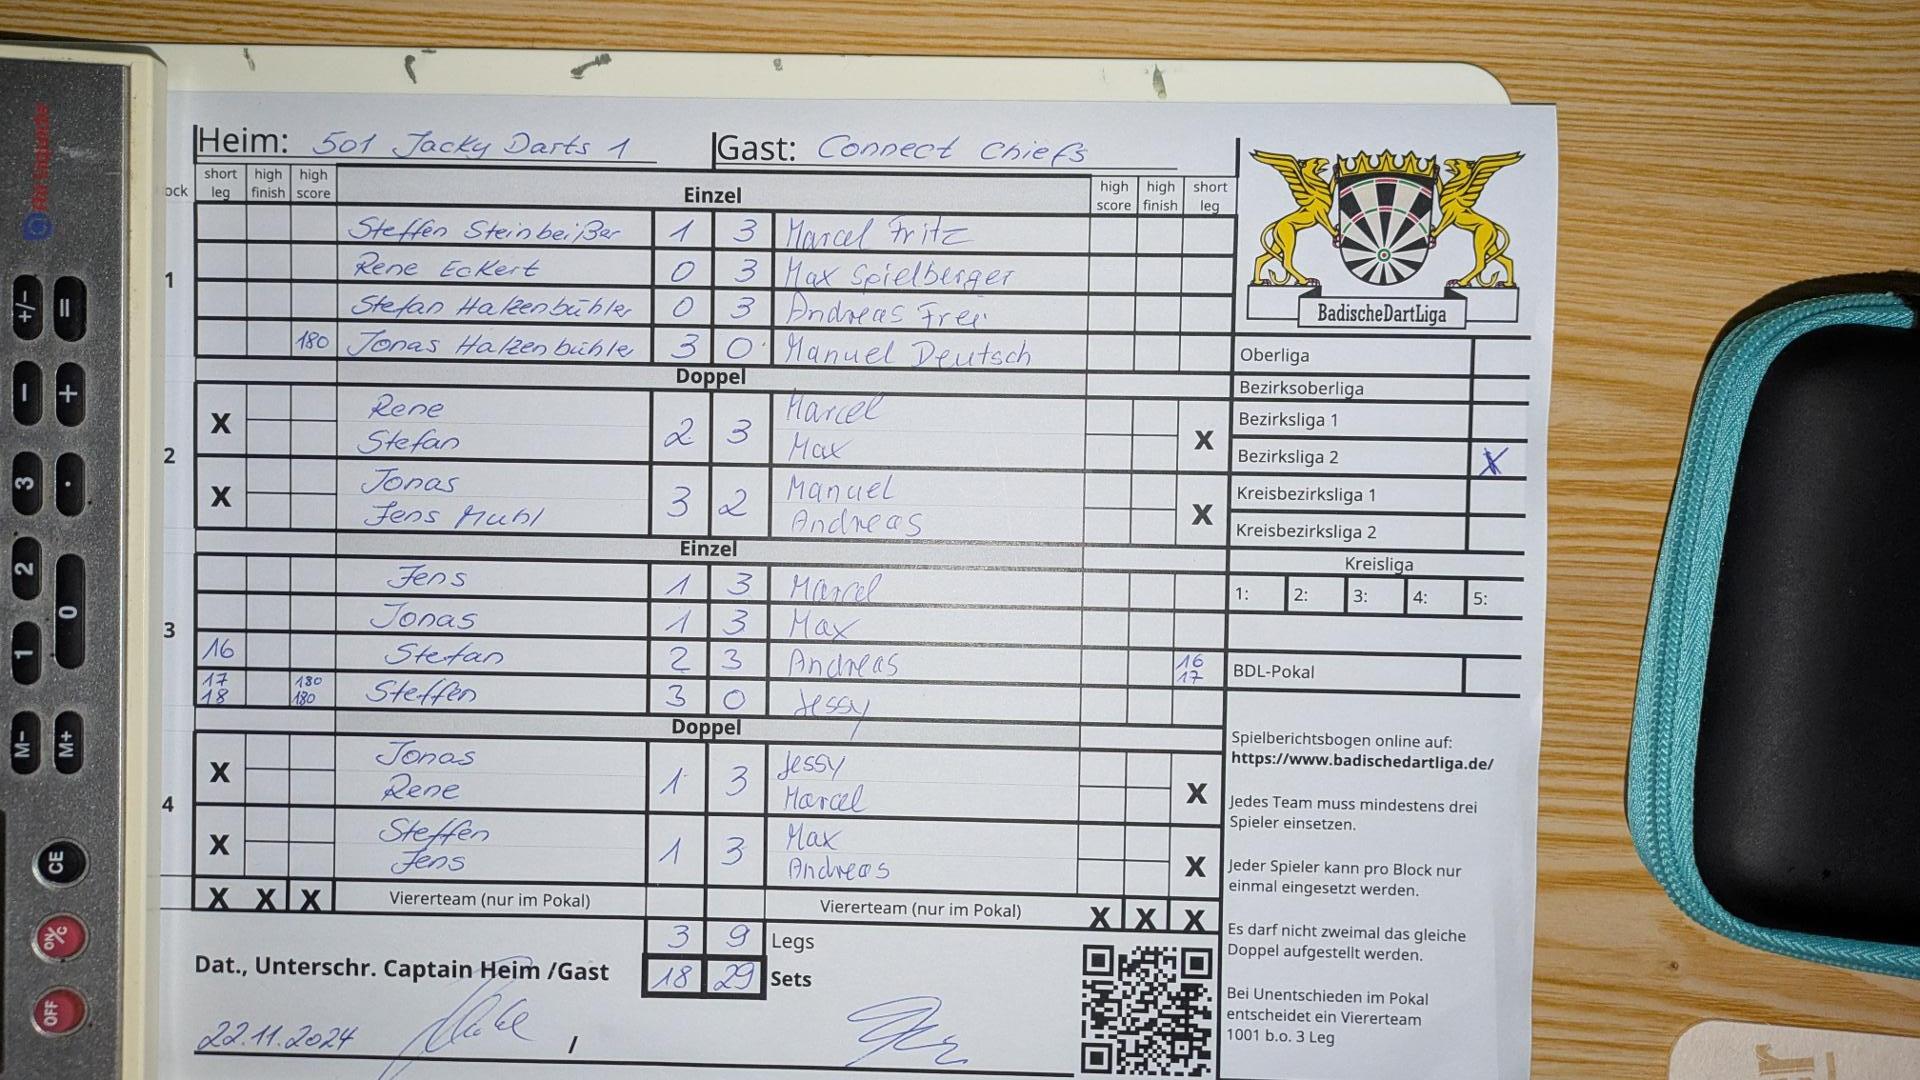 Heim: 501 Jacky Darts 1 Gast: Connect Chiefs
ock short leg high finish high score Einzel high score high finish short leg
1
Steffen Steinbeißer 1 3 Marcel Fritz
Rene Eckert 0 3 Max Spielberger
Stefan Halzenbühler 0 3 Andreas Frei
180 Jonas Halzenbühler 3 0 Manuel Deutsch
Doppel
2
X Rene 2 3 Marcel X
Stefan Max
X Jonas 3 2 Manuel X
Jens Muhl Andreas
Einzel
3
Jens 1 3 Marcel
Jonas 1 3 Max
16 Stefan 2 3 Andreas 16 17
17 18 180 180 Steffen 3 0 Jessy
Doppel
4
X Jonas 1 3 Jessy X
Rene Marcel
X Steffen 1 3 Max X
Jens Andreas
X X X Viererteam (nur im Pokal) Viererteam (nur im Pokal) X X X
3 9 Legs
18 29 Sets
Dat., Unterschr. Captain Heim /Gast
22.11.2024 /
BadischeDartLiga
Oberliga
Bezirksoberliga
Bezirksliga 1
Bezirksliga 2 X
Kreisbezirksliga 1
Kreisbezirksliga 2
Kreisliga
1: 2: 3: 4: 5:
BDL-Pokal
Spielberichtsbogen online auf:
https://www.badischedartliga.de/
Jedes Team muss mindestens drei
Spieler einsetzen.
Jeder Spieler kann pro Block nur
einmal eingesetzt werden.
Es darf nicht zweimal das gleiche
Doppel aufgestellt werden.
Bei Unentschieden im Pokal
entscheidet ein Viererteam
1001 b.o. 3 Leg
+/- =
- +
3 .
2 0
1
M- M+
CE
ON/C
OFF